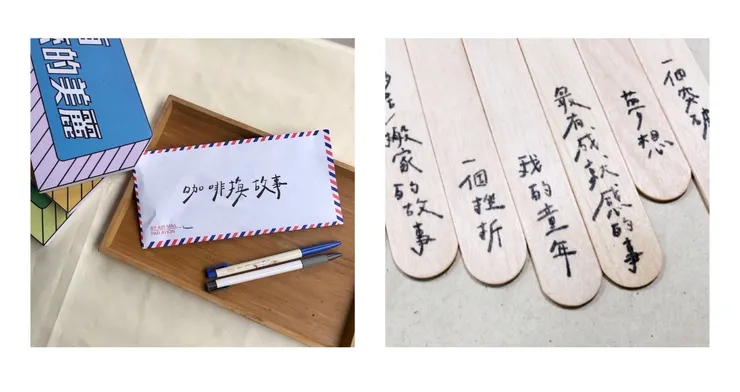 的美麗
咖啡換故事
BY AIR MAIL
PAR AVION
搬家的故事
一個挫折
我的童年
最有成就感的事
夢想
一個突破